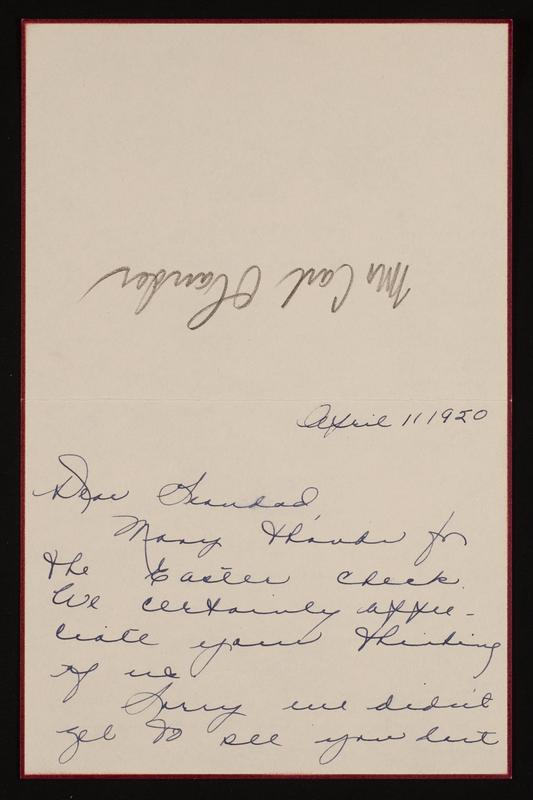 Mr Carl Olander
April 11 1950
Dear Grandad,
Many thanks for
the Easter check.
We certainly appre-
ciate your thinking
of us
Sorry we didn't
get to see you but